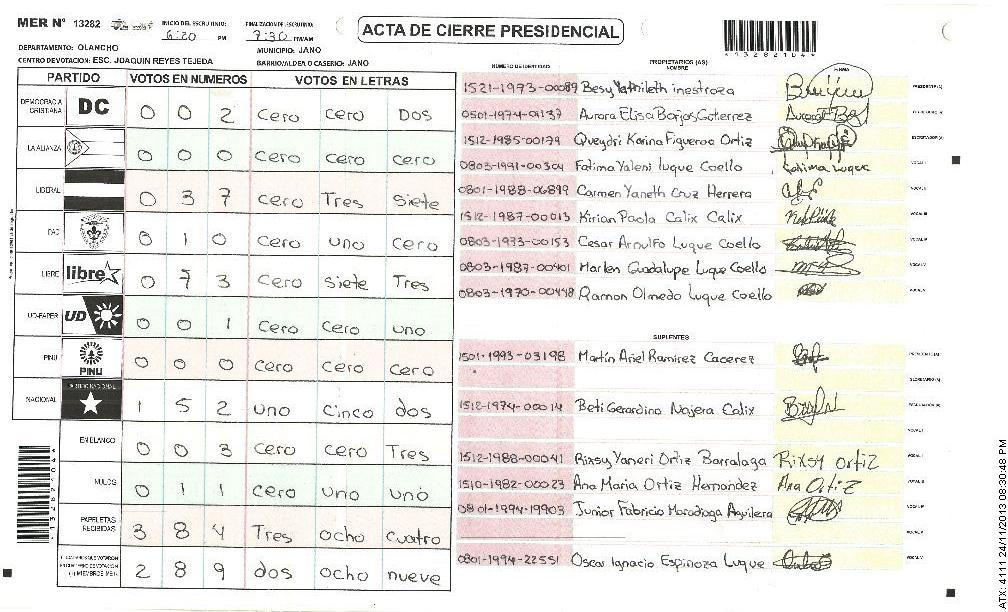 MER N° 13282 INICIO DEL ESCRUTINIO: 6:20 PM FINALIZACION DE ESCRUTINIO: 7:30 PM/AM
ACTA DE CIERRE PRESIDENCIAL
132821044
DEPARTAMENTO: OLANCHO MUNICIPIO: JANO
CENTRO DE VOTACION: ESC. JOAQUIN REYES TEJEDA BARRIO/ALDEA O CASERIO: JANO
PARTIDO VOTOS EN NUMEROS VOTOS EN LETRAS
DEMOCRACIA CRISTIANA DC 0 0 2 cero cero Dos
LA ALIANZA 0 0 0 cero cero cero
LIBERAL 0 3 7 cero Tres siete
PAC 0 1 0 cero uno cero
LIBRE libre 0 7 3 cero siete Tres
UD-FAPER UD 0 0 1 cero cero uno
PINU PINU 0 0 0 cero cero cero
NACIONAL PARTIDO NACIONAL 1 5 2 uno cinco dos
EN BLANCO 0 0 3 cero cero Tres
NULOS 0 1 1 cero uno uno
PAPELETAS RECIBIDAS 3 8 4 Tres ocho cuatro
2 8 9 dos ocho nueve
132821044
NUMERO DE IDENTIDAD PROPIETARIOS (AS) NOMBRE FIRMA
1521-1973-00089 Besy Yamileth inestroza PRESIDENTE(A)
0501-1974-01137 Aurora Elisa Borjos Goterrez
1512-1985-00179 Queydri Karina Figueroa Ortiz ESCRUTADOR(A)
0803-1991-00304 Fatima Yaleni luque Coello Fatima Luque VOCAL I
0801-1988-06899 Carmen Yaneth Cruz Herrera VOCAL II
1512-1987-00013 Kirian Paola Calix Calix VOCAL III
0803-1973-00153 Cesar Arnulfo Luque Coello VOCAL IV
0803-1987-00401 Marlen Guadalupe Luque Coello
0803-1970-00448 Ramon Olmedo Luque Coello
SUPLENTES
1501-1993-03198 Martin Ariel Ramirez Cacerez PRESIDENTE(A)
SECRETARIO (A)
1512-1974-00014 Beti Gerardina Najera Calix ESCRUTADOR(A)
1512-1988-00041 Rixsy Yaneri Ortiz Barralaga Rixsy Ortiz VOCAL I
1510-1982-00023 Ana Maria Ortiz Hernandez Ana Ortiz
0801-1994-19903 Junior Fabricio Maradiaga Aguilera
0801-1994-22551 Oscar Ignacio Espinoza Luque
ATX: 4111 24/11/2013 08:30:48 PM